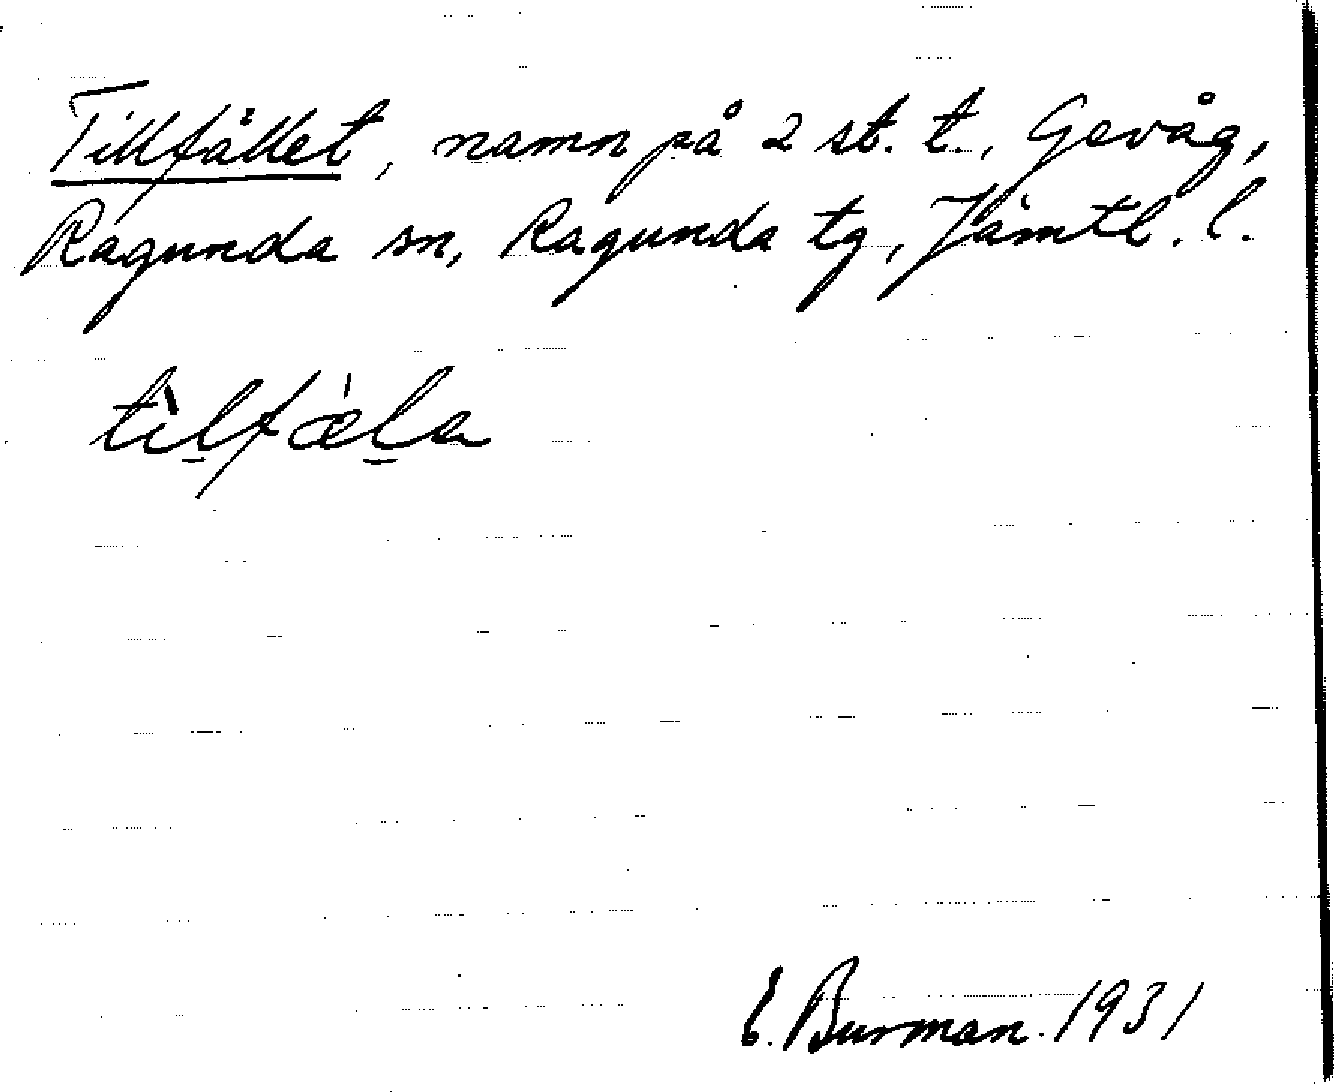 Tillfället, namn på 2 st. t., Gevåg,
Ragunda sn, Ragunda tg, Jämtl. l.
tìlfǽla
E. Burman. 1931